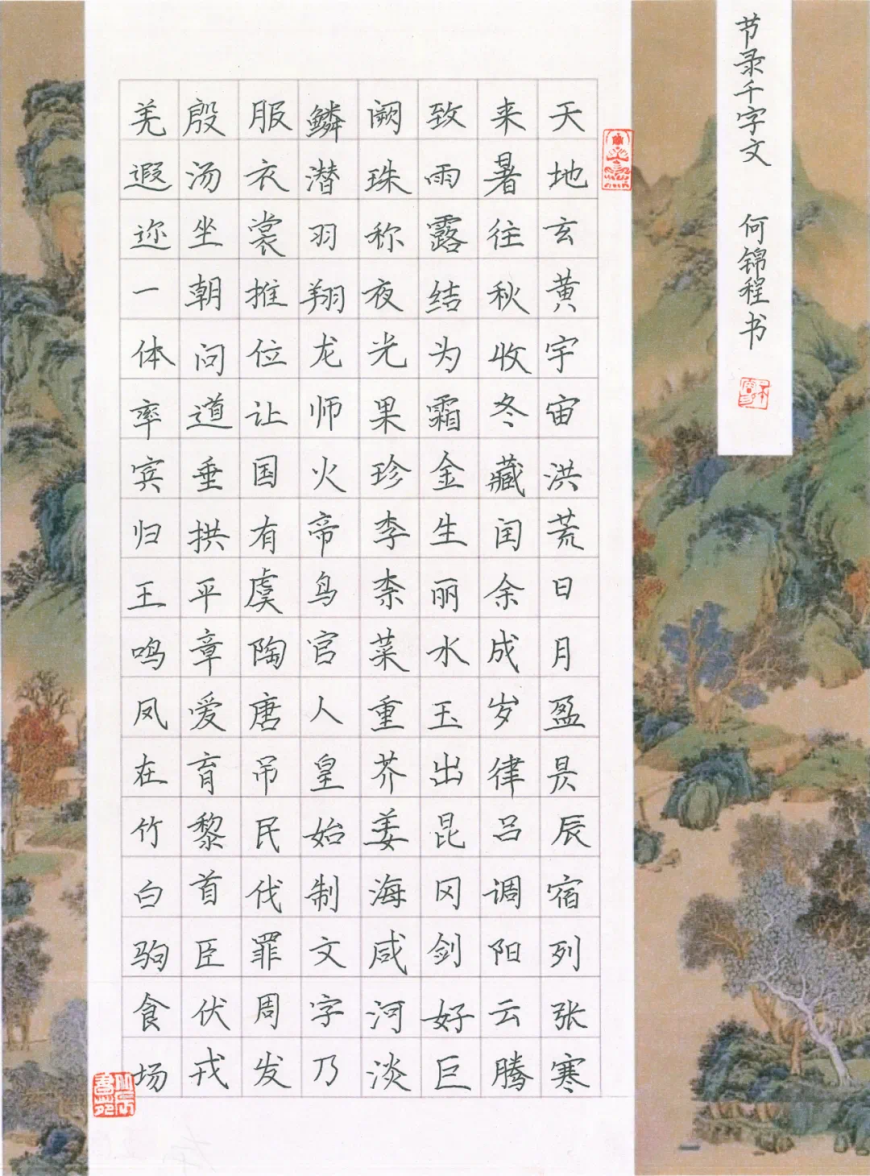 节录千字文 何锦程书
天地玄黄宇宙洪荒日月盈昃辰宿列张寒
来暑往秋收冬藏闰余成岁律吕调阳云腾
致雨露结为霜金生丽水玉出昆冈剑好巨
阙珠称夜光果珍李柰菜重芥姜海咸河淡
鳞潜羽翔龙师火帝鸟官人皇始制文字乃
服衣裳推位让国有虞陶唐吊民伐罪周发
殷汤坐朝问道垂拱平章爱育黎首臣伏戎
羌遐迩一体率宾归王鸣凤在竹白驹食场